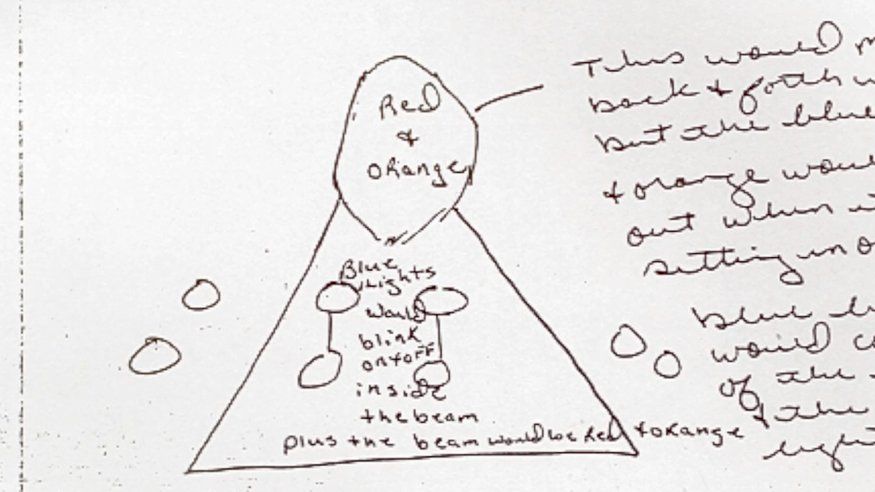 Red
&
Orange
Blue
Lights
would
blink
on & off
inside
the beam
plus the beam would be Red & Orange
This would
back & forth
but the blue
& orange
out when
setting
blue
would
of the
& the